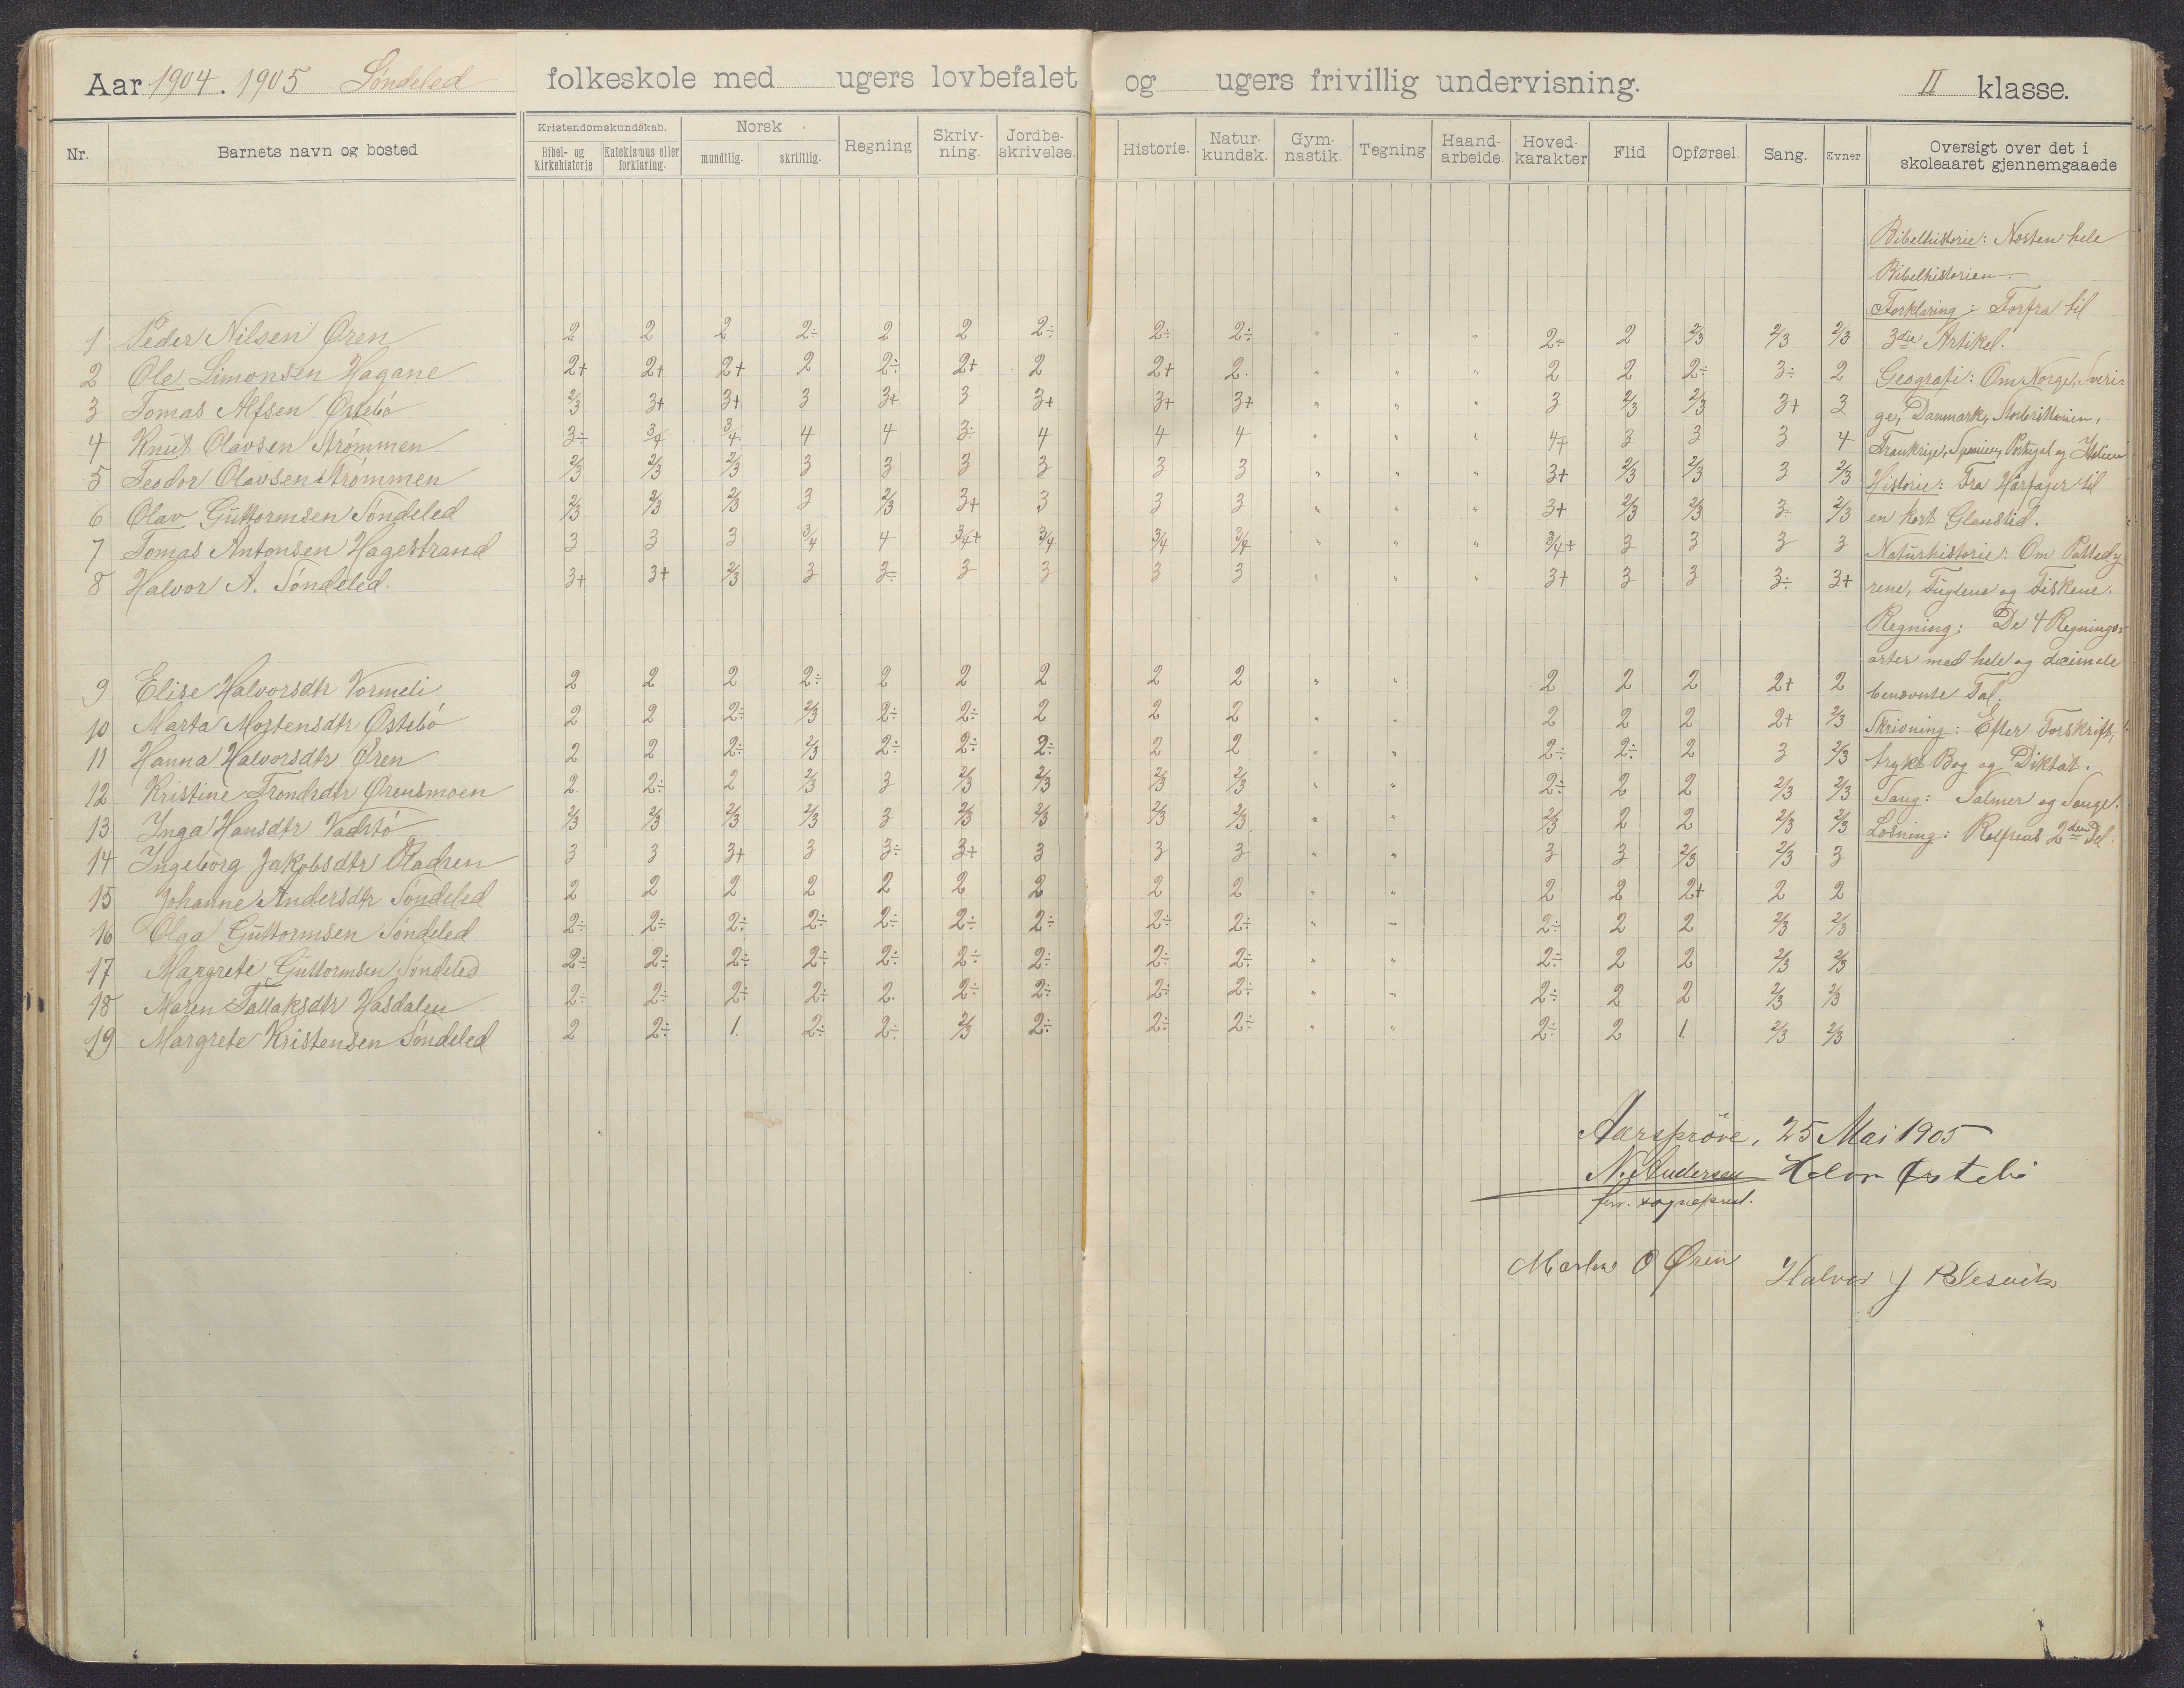 Aar 1904. 1905 Søndeled folkeskole med ugers lovbefalet og ugers frivillig undervisning. II klasse.
Nr. Barnets navn og bosted Kristendomskundskab. Bibel- og Kirkehistorie Katekismus eller forklaring. Norsk mundtlig. skriftlig. Regning Skriv-ning. Jordbe-skrivelse. Historie. Natur-kundsk. Gym-nastik. Tegning Haand-arbeide. Hoved-karakter Flid Opførsel. Sang. Evner Oversigt over det i skoleaaret gjennemgaaede
1 Peder Nilsen Øren 2 2 2 2÷ 2 2 2÷ 2÷ 2÷ " " " 2÷ 2 2/3 2/3 2/3
2 Ole Simonsen Hagane 2+ 2+ 2+ 2 2÷ 2+ 2 2+ 2. " " " 2 2 2÷ 3÷ 2
3 Tomas Alfsen Østebö 2/3 3+ 3+ 3 3+ 3 3+ 3+ 3+ " " " 3 2/3 2/3 3+ 3
4 Knut Olavsen Strömmen 3÷ 3/4 3/4 4 4 3÷ 4 4 4 " " " 4+ 3 3 3 4
5 Teodor Olavsen Strömmen 2/3 2/3 2/3 3 3 3 3 3 3 " " " 3+ 2/3 2/3 3 2/3
6 Olav Guttormsen Söndeled 2/3 2/3 2/3 3 2/3 3+ 3 3 3 " " " 3+ 2/3 2/3 3÷ 2/3
7 Tomas Antonsen Hagestrand 3 3 3 3/4 4 3/4+ 3/4 3/4 3/4 " " " 3/4+ 3 3 3 3
8 Halvor A. Söndeled. 3+ 3+ 2/3 3 3÷ 3 3 3 3 " " " 3+ 3 3 3÷ 3+
9 Elise Halvorsdtr Vormeli 2 2 2 2÷ 2 2 2 2 2 " " 2 2 2 2+ 2
10 Marta Mortensdtr Østebö 2 2 2÷ 2/3 2÷ 2÷ 2 2 2 " " 2 2 2 2+ 2/3
11 Hanna Halvorsdtr Øren 2 2 2÷ 2/3 2÷ 2÷ 2÷ 2 2 " " 2÷ 2÷ 2 3 2/3
12 Kristine Trondsdtr Ørensmoen 2. 2÷ 2 2/3 3 2/3 2/3 2/3 2/3 " " 2÷ 2 2 2/3 2/3
13 Inga Hansdtr 2/3 2/3 2/3 2/3 3 2/3 2/3 2/3 2/3 " " 2/3 2 2 2/3 2/3
14 Ingeborg Jakobsdtr 3 3 3+ 3 3÷ 3+ 3 3 3 " " 3 3 2/3 2/3 3
15 Johanne Andersdtr Söndeled 2 2 2 2 2 2 2 2 2 " " 2 2 2+ 2 2
16 Olga Guttormsen Söndeled 2÷ 2÷ 2÷ 2÷ 2÷ 2÷ 2÷ 2÷ 2÷ " - 2÷ 2 2 2/3 2/3
17 Margrete Guttormsen Söndeled 2÷ 2÷ 2÷ 2÷ 2÷ 2÷ 2÷ 2÷ 2÷ " " 2÷ 2 2 2/3 2/3
18 Maren Tallaksdtr Hasdalen 2÷ 2÷ 2÷ 2÷ 2. 2÷ 2÷ 2÷ 2÷ " " 2÷ 2 2 2/3 2/3
19 Margrete Kristensen Söndeled 2 2÷ 1. 2÷ 2÷ 2/3 2÷ 2÷ 2÷ " " 2÷ 2 1. 2/3 2/3
Bibelhistorie: Næsten hele
Bibelhistorien.
Forklaring: Forfra til
3die Artikel.
Geografi: Om Norge, Sveri-
ge, Danmark, Storbritanien,
Frankrige, Spanien, Portugal og Italien
Historie: Fra Hårfager til
en kort Glanstid.
Naturhistorie: Om Pattedy
rene, Fuglene og Fiskene.
Regning: De 4 Regnings-
arter med hele og decimale
benævnte Tal.
Skrivning: Efter Forskrift,
trykt Bog og Diktat.
Sang: Salmer og Sange.
Læsning: 2den Del.
Aarspröve, 25 Mai 1905
N. Andersen Halvor Østebö
sogneprest.
O Øren Halvor J